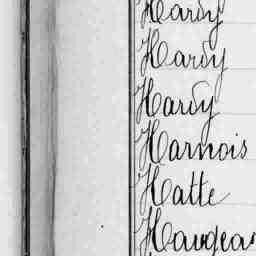 Hardy
Hardy
Hardy
Harnois
Hatte